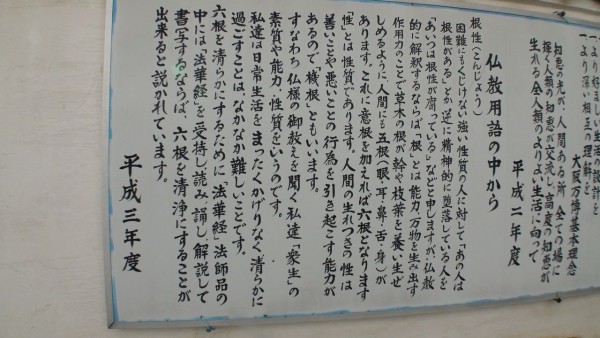 一より好ましい生活の設計を
一より深い相互の理解を
大阪万博基本理念
知恵の光が、人間ある所、全ての場に
輝き人類の知恵が交流し高度の知恵が
生れる全人類のよりよい生活に向って
平成二年度
仏教用語の中から
根性(こんじょう)
困難にもくじけない強い性質の人に対して「あの人は
根性がある」とか逆に精神的に堕落している人を
「あいつは根性が腐っている」などと申しますが、仏教
的に解釈するならば、「根」とは能力、万物を生み出す
作用力のことで草木の根が幹や枝葉を養い生ぜ
しめるように、人間にも五根(眼・耳・鼻・舌・身)が
あります。これに意根を加えれば六根となります
「性」とは性質であります。人間の生れつきの性は
善いことや悪いことの行為を引き起こす能力が
あるので、「機根」ともいいます。
すなわち仏様の御教えを聞く私達「衆生」の
素質や能力・性質をいうのです。
私達は日常生活をまったくかげりなく、清らかに
過ごすことは、なかなか難しいことです。
六根を清らかにするために「法華経」法師品の
中には、「法華経」を受持し、読み、誦し、解説して
書写するならば、六根を清浄にすることが
出来ると説かれています。
平成三年度